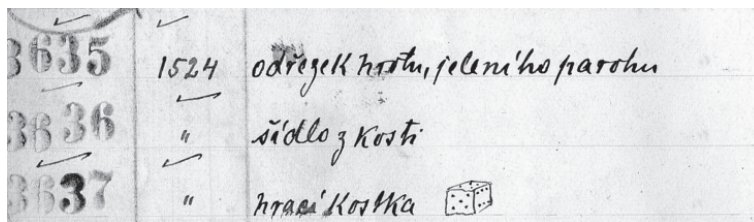 3635 1524 odřezek hrotu, jeleního parohu
3636 " šídlo z kosti
3637 " hrací kostka